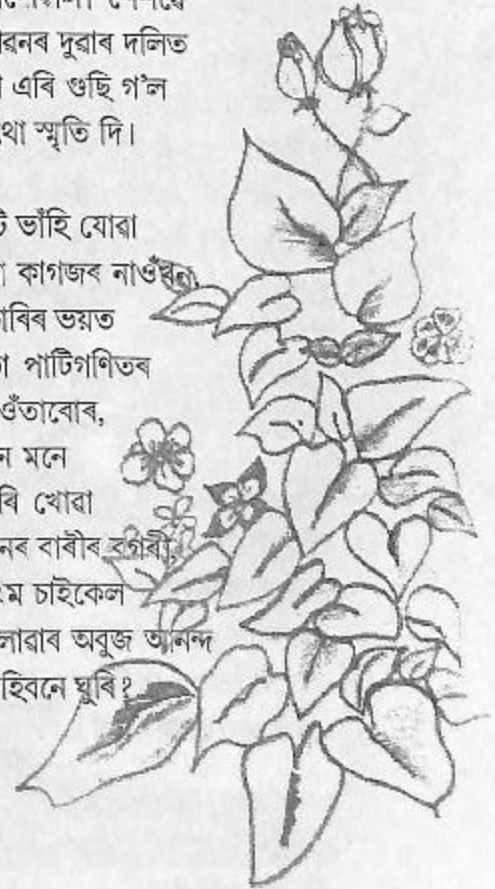 ৱনৰ দুৱাৰ দলিত
এৰি গুছি গ'ল
থো স্মৃতি দি।
ভাঁহি যোৱা
কাগজৰ নাওঁখন,
ৰিৰ ভয়ত
পাটিগণিতৰ
ওঁতাবোৰ,
ন মনে
ৰি খোৱা
নৰ বাৰীৰ বগৰী,
ম চাইকেল
লোৱাৰ অবুজ আনন্দ
হিবনে ঘূৰি?